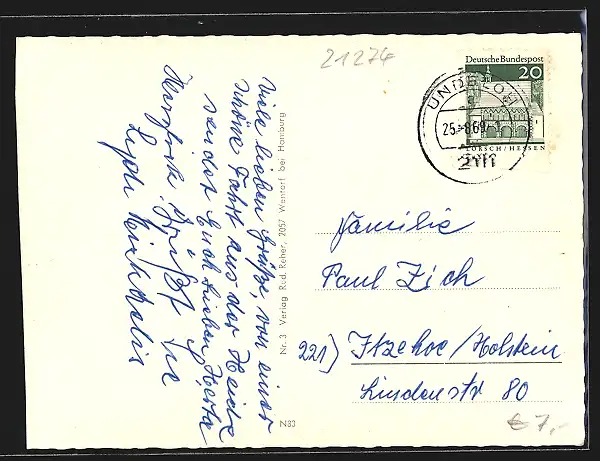 21274
Deutsche Bundespost
20
UNDELOH
25.-8.69
2111
LORSCH/HESSEN
Viele lieben Grüße, von einer
schöne Fahrt aus der Heide
sendet Euch lieben Herta
Grüßt Sie
Nr. 3 Verlag Rud. Reher, 2057 Wentorf bei Hamburg
N83
Familie
Paul Zich
221) Itzehoe/Holstein
Lindenstr 80
€ 7,-